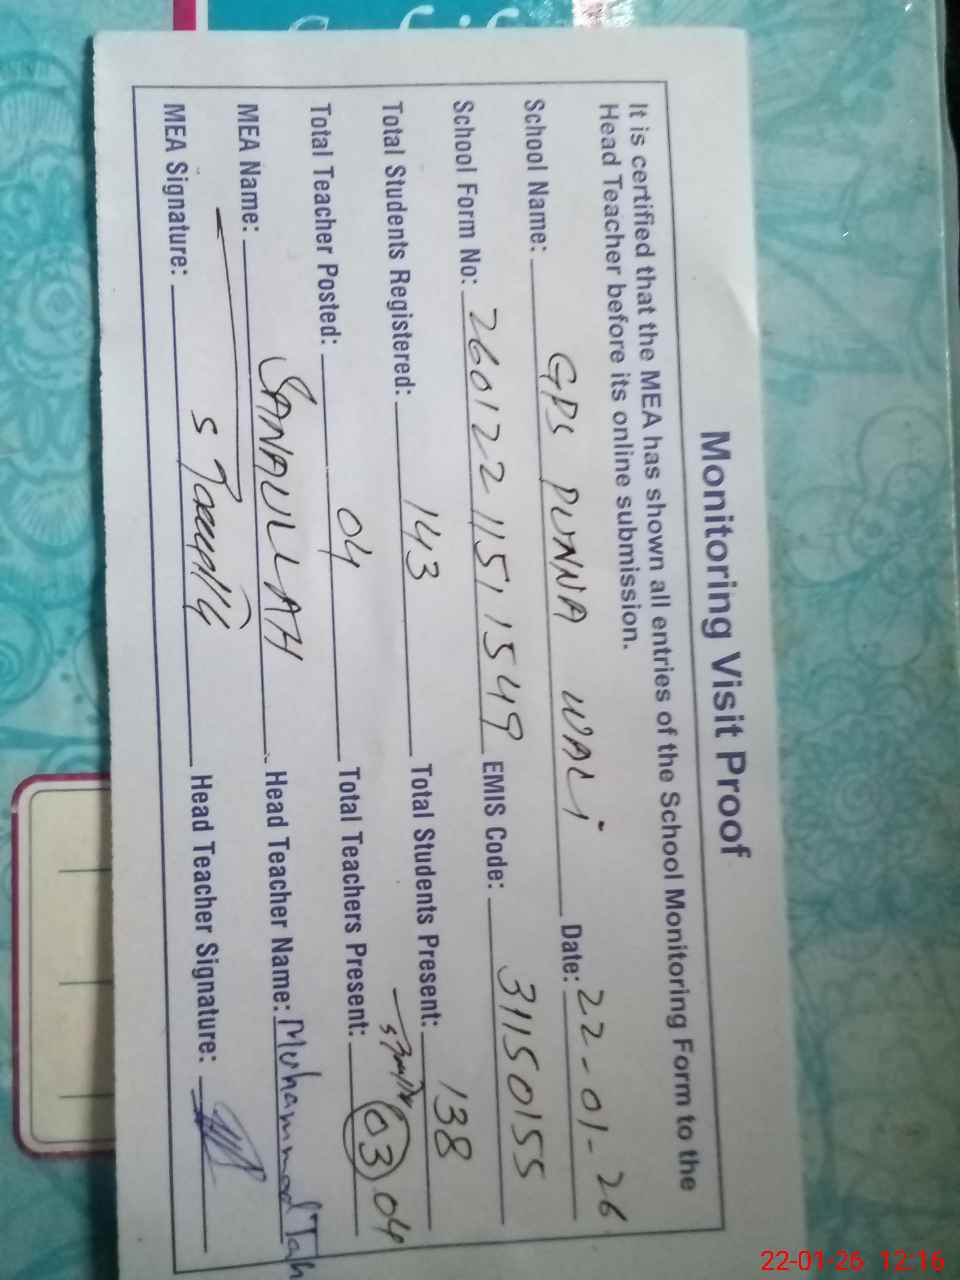 Monitoring Visit Proof
It is certified that the MEA has shown all entries of the School Monitoring Form to the
Head Teacher before its online submission.
School Name: GPS PUNNA WALi Date: 22-01-26
School Form No: 260122 1151, 1549 EMIS Code: 31150155
Total Students Registered: 143 Total Students Present: 138
Total Teacher Posted: 04 Total Teachers Present: 03 04
MEA Name: SANAULLAH Head Teacher Name: Muhammad Tah
MEA Signature: Head Teacher Signature:
22-01-26 12:16